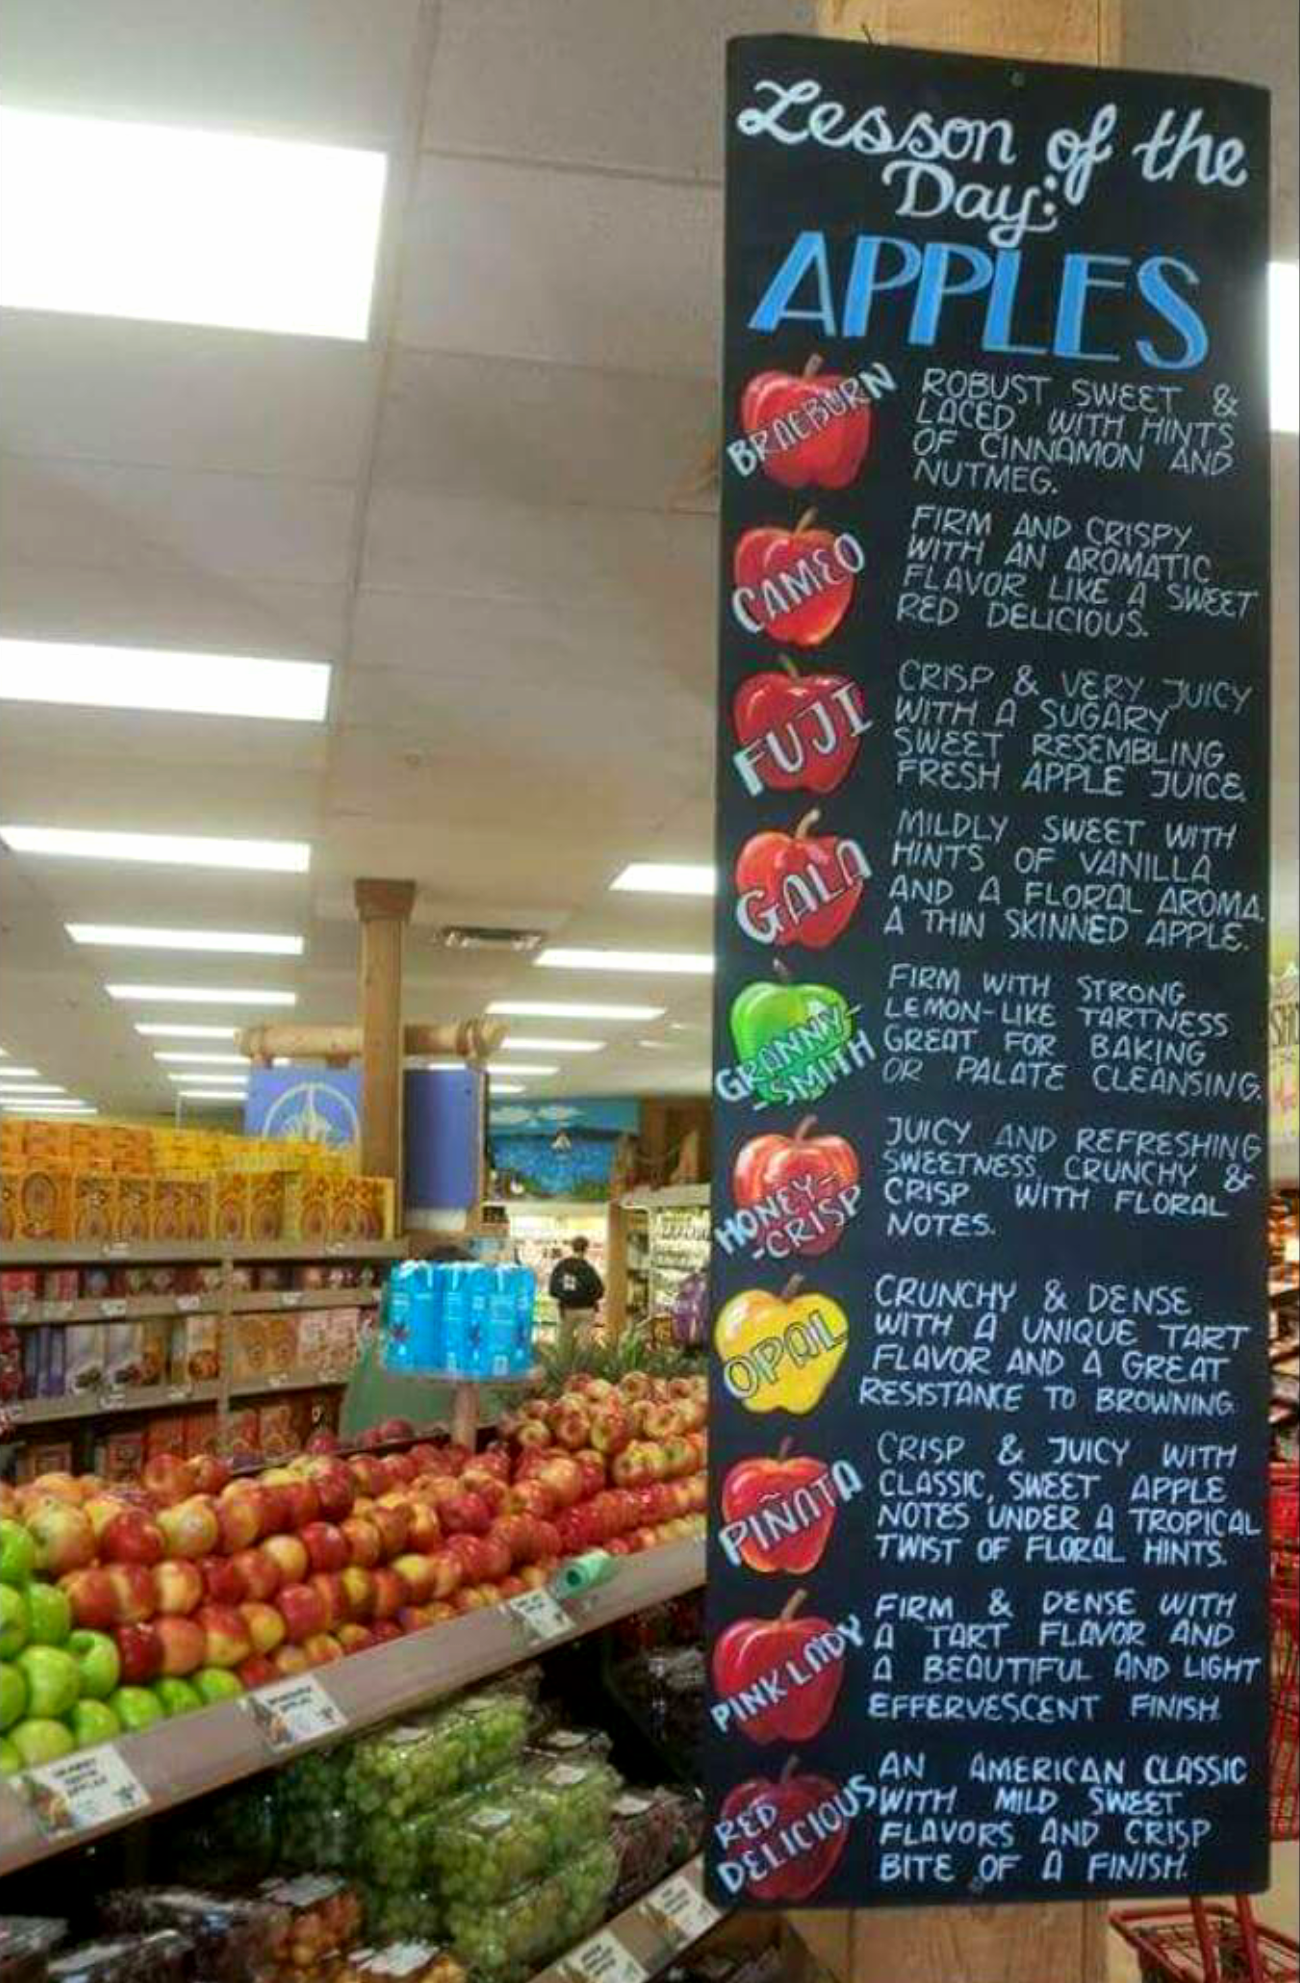 Lesson of the
Day:
APPLES
BRAEBURN
ROBUST SWEET &
LACED WITH HINTS
OF CINNAMON AND
NUTMEG.
CAMEO
FIRM AND CRISPY
WITH AN AROMATIC
FLAVOR LIKE A SWEET
RED DELICIOUS.
FUJI
CRISP & VERY JUICY
WITH A SUGARY
SWEET RESEMBLING
FRESH APPLE JUICE.
GALA
MILDLY SWEET WITH
HINTS OF VANILLA
AND A FLORAL AROMA.
A THIN SKINNED APPLE.
GRANNY-
-SMITH
FIRM WITH STRONG
LEMON-LIKE TARTNESS
GREAT FOR BAKING
OR PALATE CLEANSING.
HONEY-
-CRISP
JUICY AND REFRESHING
SWEETNESS, CRUNCHY &
CRISP WITH FLORAL
NOTES.
OPAL
CRUNCHY & DENSE
WITH A UNIQUE TART
FLAVOR AND A GREAT
RESISTANCE TO BROWNING.
PIÑATA
CRISP & JUICY WITH
CLASSIC, SWEET APPLE
NOTES UNDER A TROPICAL
TWIST OF FLORAL HINTS.
PINK LADY
FIRM & DENSE WITH
A TART FLAVOR AND
A BEAUTIFUL AND LIGHT
EFFERVESCENT FINISH.
RED
DELICIOUS
AN AMERICAN CLASSIC
WITH MILD SWEET
FLAVORS AND CRISP
BITE OF A FINISH.